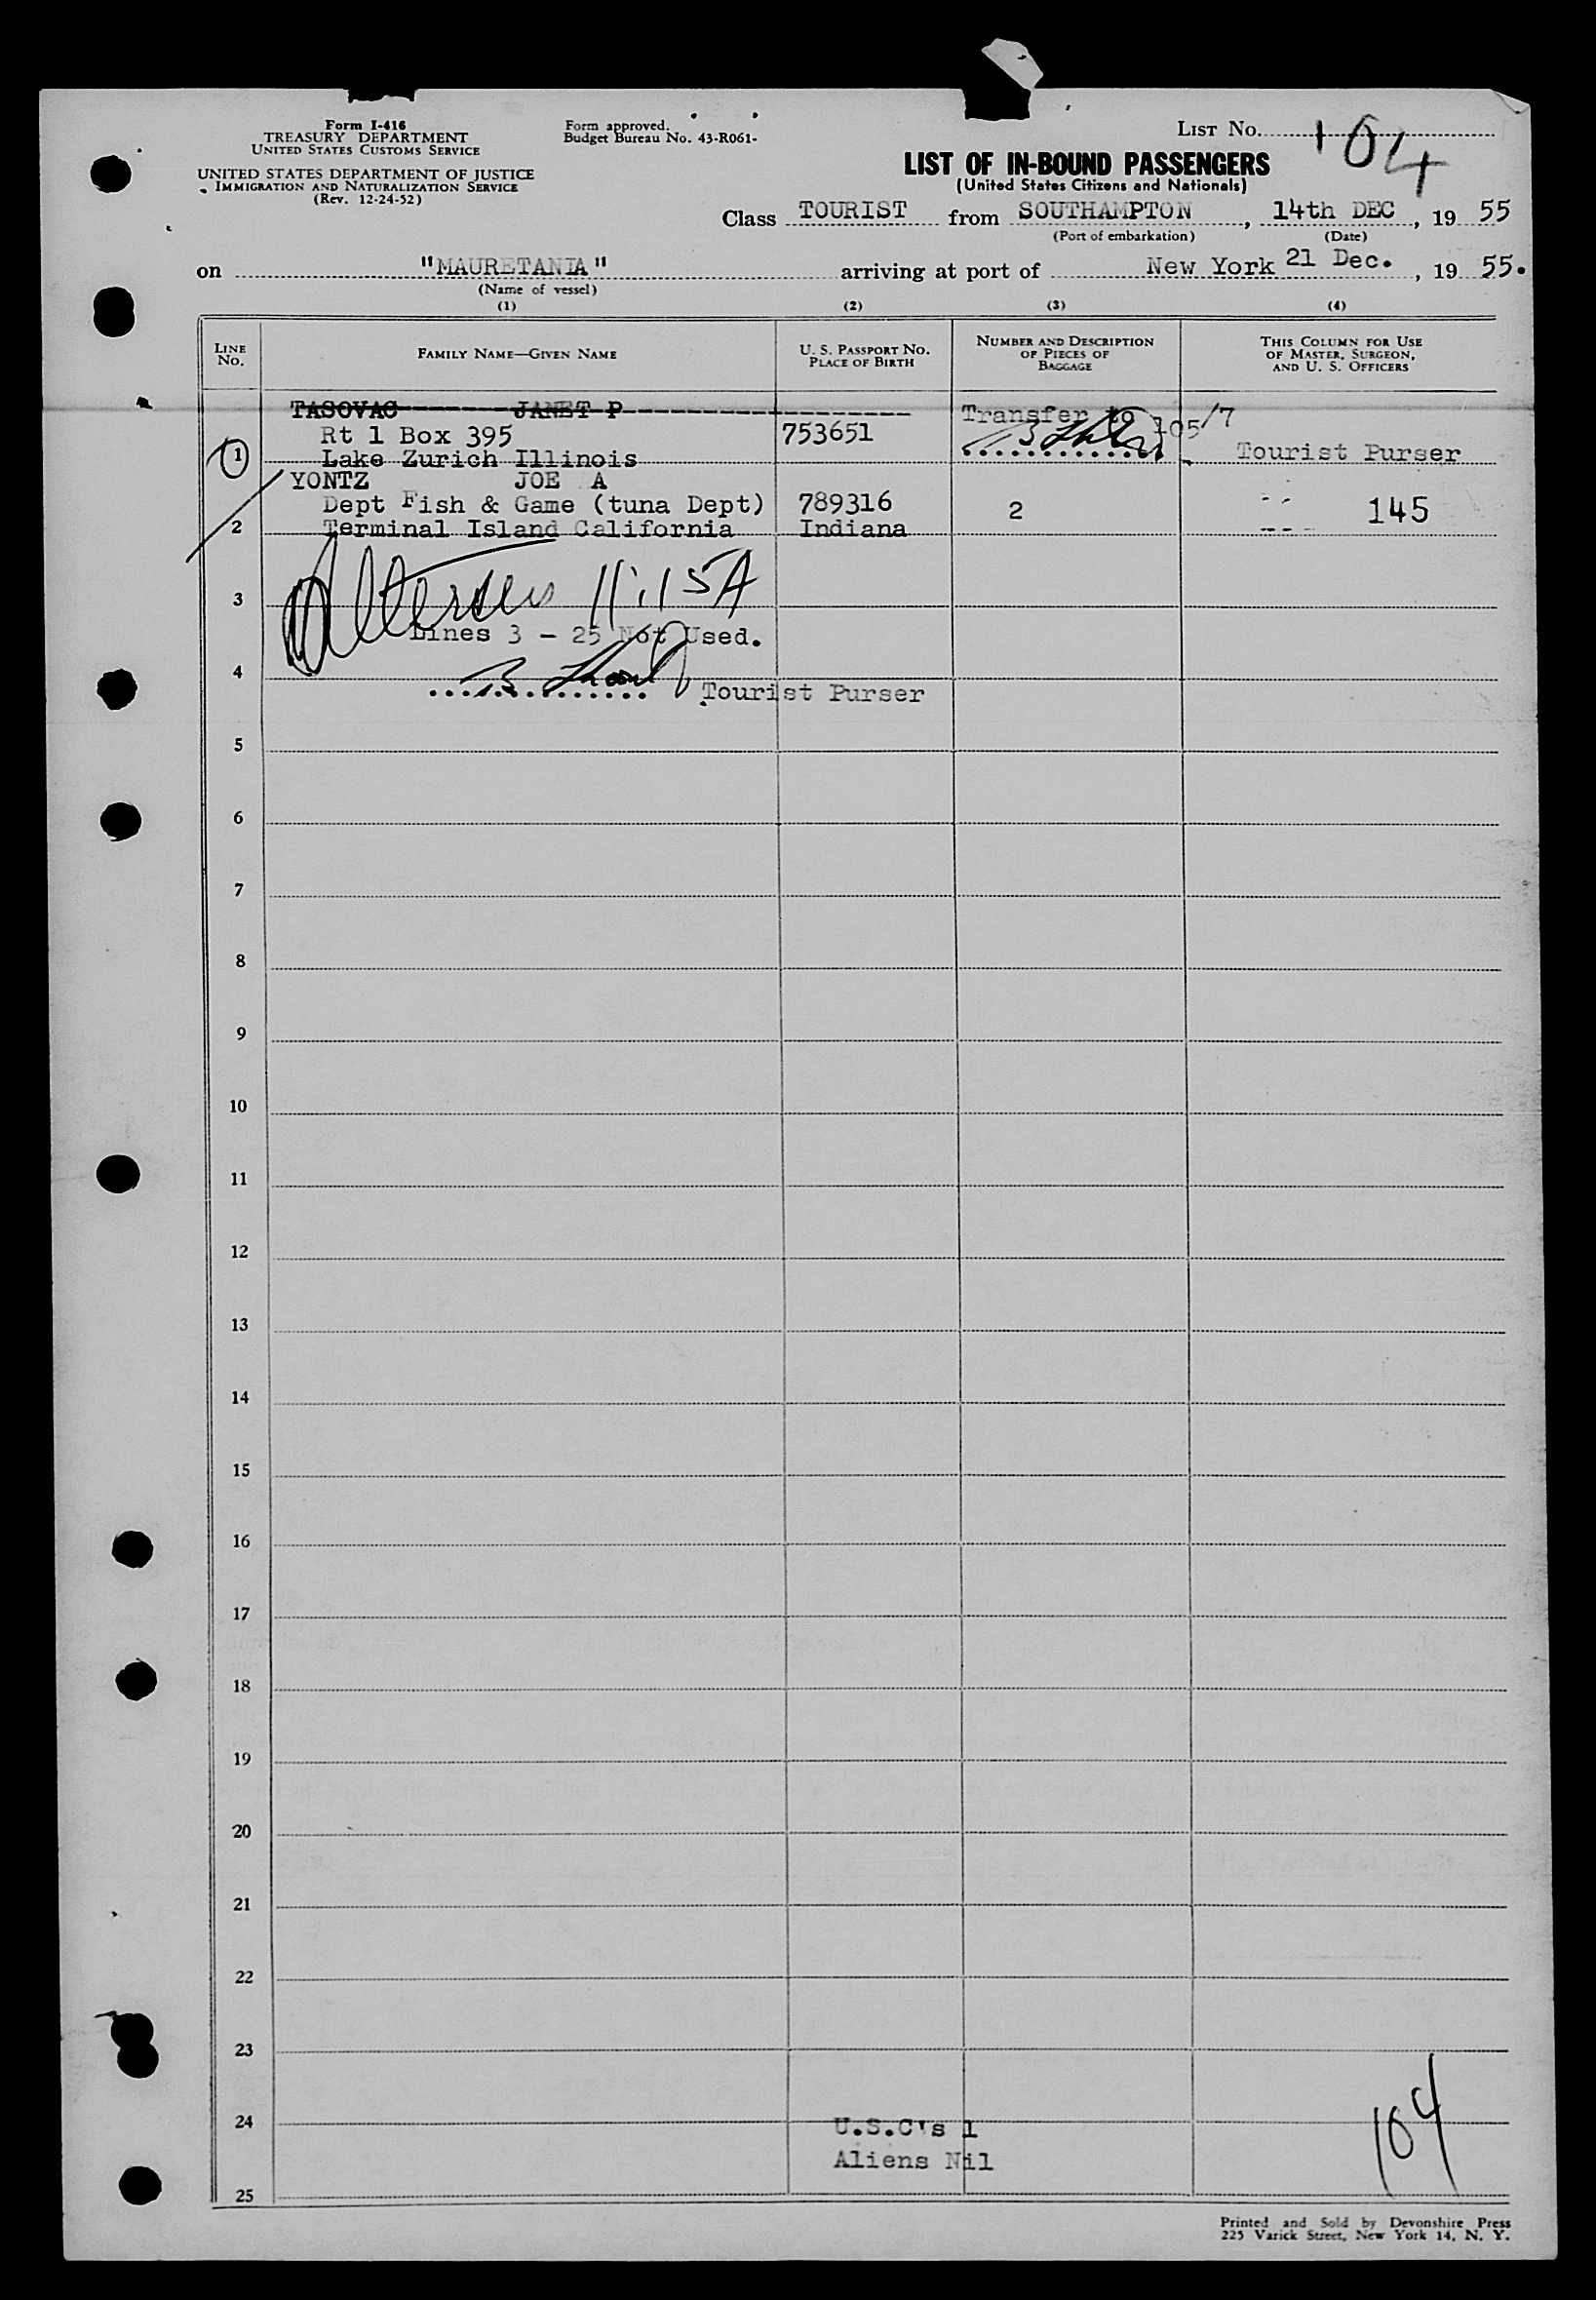 Form I-416
TREASURY DEPARTMENT
UNITED STATES CUSTOMS SERVICE
UNITED STATES DEPARTMENT OF JUSTICE
IMMIGRATION AND NATURALIZATION SERVICE
(Rev. 12-24-52)
Form approved.
Budget Bureau No. 43-R061-
LIST NO. 104
LIST OF IN-BOUND PASSENGERS
(United States Citizens and Nationals)
Class TOURIST from SOUTHAMPTON, 14th DEC, 19 55
(Port of embarkation) (Date)
on "MAURETANIA" arriving at port of New York 21 Dec., 19 55.
(Name of vessel)
(1) (2) (3) (4)
LINE NO.
FAMILY NAME—GIVEN NAME
U. S. PASSPORT NO.
PLACE OF BIRTH
NUMBER AND DESCRIPTION
OF PIECES OF
BAGGAGE
THIS COLUMN FOR USE
OF MASTER, SURGEON,
AND U. S. OFFICERS
TASOVAC JANET P Transfer to 105/7
Rt 1 Box 395 753651
1 Lake Zurich Illinois Tourist Purser
YONTZ JOE A
Dept Fish & Game (tuna Dept) 789316 2 145
2 Terminal Island California Indiana
11:15A
3
Lines 3 - 25 Not Used.
4
Tourist Purser
5
6
7
8
9
10
11
12
13
14
15
16
17
18
19
20
21
22
23
24 U.S.C's 1
Aliens Nil
104
25
Printed and Sold by Devonshire Press
225 Varick Street, New York 14, N. Y.